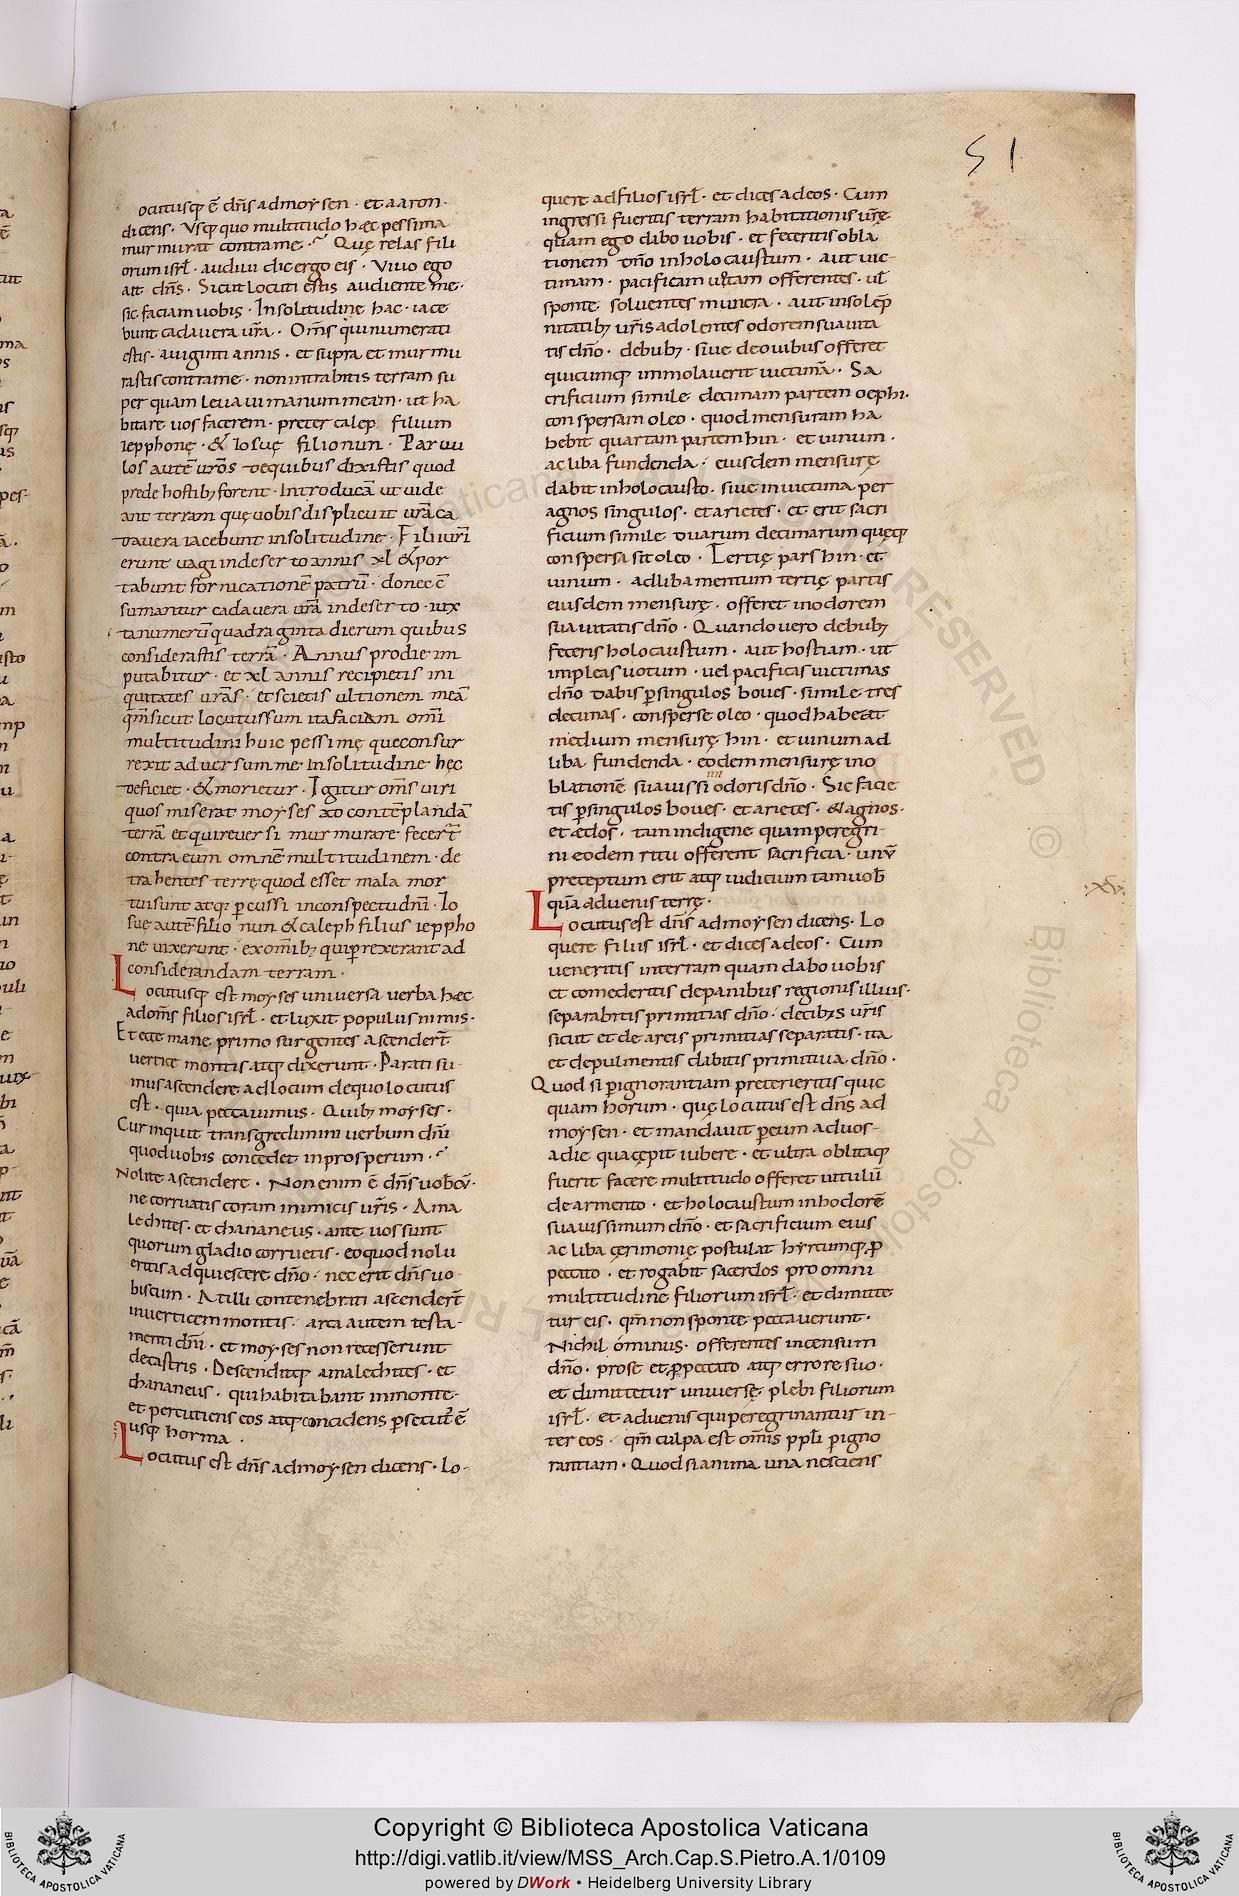 51
ocutusq; ē dn̄s ad moysen · et aaron ·
dicens · Vsq; quo multitudo hæc pessima
murmurat contra me · Quę relas fili
orum isrl̄ · audiui dic ergo eis · Viuo ego
ait dn̄s · Sicut locuti estis audiente me ·
sic faciam uobis · In solitudine hac · iace
bunt cadauera ur̄a · Om̄s qui numerati
estis · a uiginti annis · et supra et murmu
rastis contra me · non intrabitis terram su
per quam leuaui manum meam · ut ha
bitare uos facerem · preter calep filium
iepphonę · & iosuę filio nun · Paruu
los autē ur̄os de quibus dixistis quod
prede hostib; forent · Introducā ut uide
ant terram quę uobis displicuit ur̄a ca
dauera iacebunt in solitudine · Filii ur̄i
erunt uagi in deserto annis xl & por
tabunt fornicationē patrū · donec c̄
sumantur cadauera ur̄a in deserto · iux
ta numerū quadraginta dierum quibus
considerastis terrā · Annus pro die im
putabitur · et xl annis recipietis ini
quitates ur̄as · et scietis ultionem meā
qm̄ sicut locutus sum ita faciam omī
multitudini huic pessimę que consur
rexit aduersum me in solitudine hęc
deficiet · & morietur · Igitur om̄s uiri
quos miserat moyses ad contēplandā
terrā et qui reuersi murmurare fecert̄
contra eum omnē multitudinem · de
trahentes terrę quod esset mala mor
tui sunt atq; percussi in conspectu dn̄i · Io
sue autē filio nun & caleph filius ieppho
ne uixerunt · ex omīb; qui p̄rexerant ad
considerandam terram ·
Locutusq; est moyses uniuersa uerba hæc
ad om̄s filios isrl̄ · et luxit populus nimis ·
Et ecce mane primo surgentes ascendert̄
uertice montis atq; dixerunt · Parati su
mus ascendere ad locum de quo locutus
est · quia peccauimus · Quib; moyses ·
Cur inquit transgredimini uerbum dn̄i
quod uobis concedet in prosperum ·
Nolite ascendere · Non enim ē dn̄s uobcū ·
ne corruatis coram inimicis ur̄is · Ama
lechites · et chananeus · ante uos sunt
quorum gladio corruetis · eo quod nolu
eritis adquiescere dn̄o · nec erit dn̄s uo
biscum · At illi contenebrati ascendert̄
in uerticem montis · arca autem testa-
menti dn̄i · et moyses non recesserunt
de castris · Descenditq; amalechites · et
chananeus · qui habitabant in monte ·
et percutiens eos atq; concidens p̄secut' ē
usq; horma ·
Locutus est dn̄s ad moysen dicens · Lo-
quere ad filios isrl̄ · et dices ad eos · Cum
ingressi fueritis terram habitationis ur̄ę
quam ego dabo uobis · et feceritis obla
tionem dn̄o in holocaustum · aut uic-
timam · pacificam uotam offerentes · ul̄
sponte soluentes munera · aut in solēp
nitatib; ur̄is adolentes odorem suauita
tis dn̄o · de bub; · siue de ouibus offeret
quicumq; immolauerit uictimā · Sa
crificium simile decimam partem oephi ·
conspersam oleo · quod mensuram ha
bebit quartam partem hin · et uinum ·
ac liba fundenda · eiusdem mensurę
dabit in holocausto · siue in uictima per
agnos singulos · et arietes · et erit sacri
ficium simile duarum decimarum quęq;
conspersa sit oleo · Tertię pars hin · et
uinum · ad libamentum tertię partis
eiusdem mensurę · offeret in odorem
suauitatis dn̄o · Quando uero de bub;
feceris holocaustum · aut hostiam · ut
impleas uotum · uel pacificas uictimas
dn̄o dabis p̄ singulos boues · simile tres
decimas · consperse oleo · quod habeat
medium mensurę hin · et uinum ad
liba fundenda · eodem mensurę in o
blationē suauissimi odoris dn̄o · Sic facie
tis p̄ singulos boues · et arietes · & agnos ·
et ædos · tam indigene quam peregri-
ni eodem ritu offerent sacrificia · unū
preceptum erit atq; iudicium tam uob̄
quā aduenis terrę ·
Locutus est dn̄s ad moysen dicens · Lo
quere filiis isrl̄ · et dices ad eos · Cum
ueneritis in terram quam dabo uobis
·xv·
et comederitis de panibus regionis illius ·
separabitis primitias dn̄o · de cibys ur̄is
sicut et de areis primitias separatis · ita
et de pulmentis dabitis primitiua dn̄o ·
Quod si p̄ ignorantiam preterieritis quic
quam horum · quę locutus est dn̄s ad
moysen · et mandauit p̄ eum ad uos-
a die qua cępit iubere · et ultra oblitaq;
fuerit facere multitudo offeret uitulū
de armento · et holocaustum in hodorē
suauissimum dn̄o · et sacrificium eius
ac liba cerimonię postulat hyrcumq; p̄
peccato · et rogabit sacerdos pro omni
multitudine filiorum isrl̄ · et dimitte
tur eis · qm̄ non sponte peccauerunt ·
Nichil ominus · offerentes incensum
dn̄o · pro se et p̄ peccato atq; errore suo ·
et dimittetur uniuersę plebi filiorum
isrl̄ · et aduenis qui peregrinantur in-
ter eos · qm̄ culpa est om̄is ppl̄i p̄ igno
rantiam · Quod si anima una nesciens
Copyright © Biblioteca Apostolica Vaticana
http://digi.vatlib.it/view/MSS_Arch.Cap.S.Pietro.A.1/0109
powered by DWork • Heidelberg University Library
BIBLIOTECA APOSTOLICA VATICANA
BIBLIOTECA APOSTOLICA VATICANA